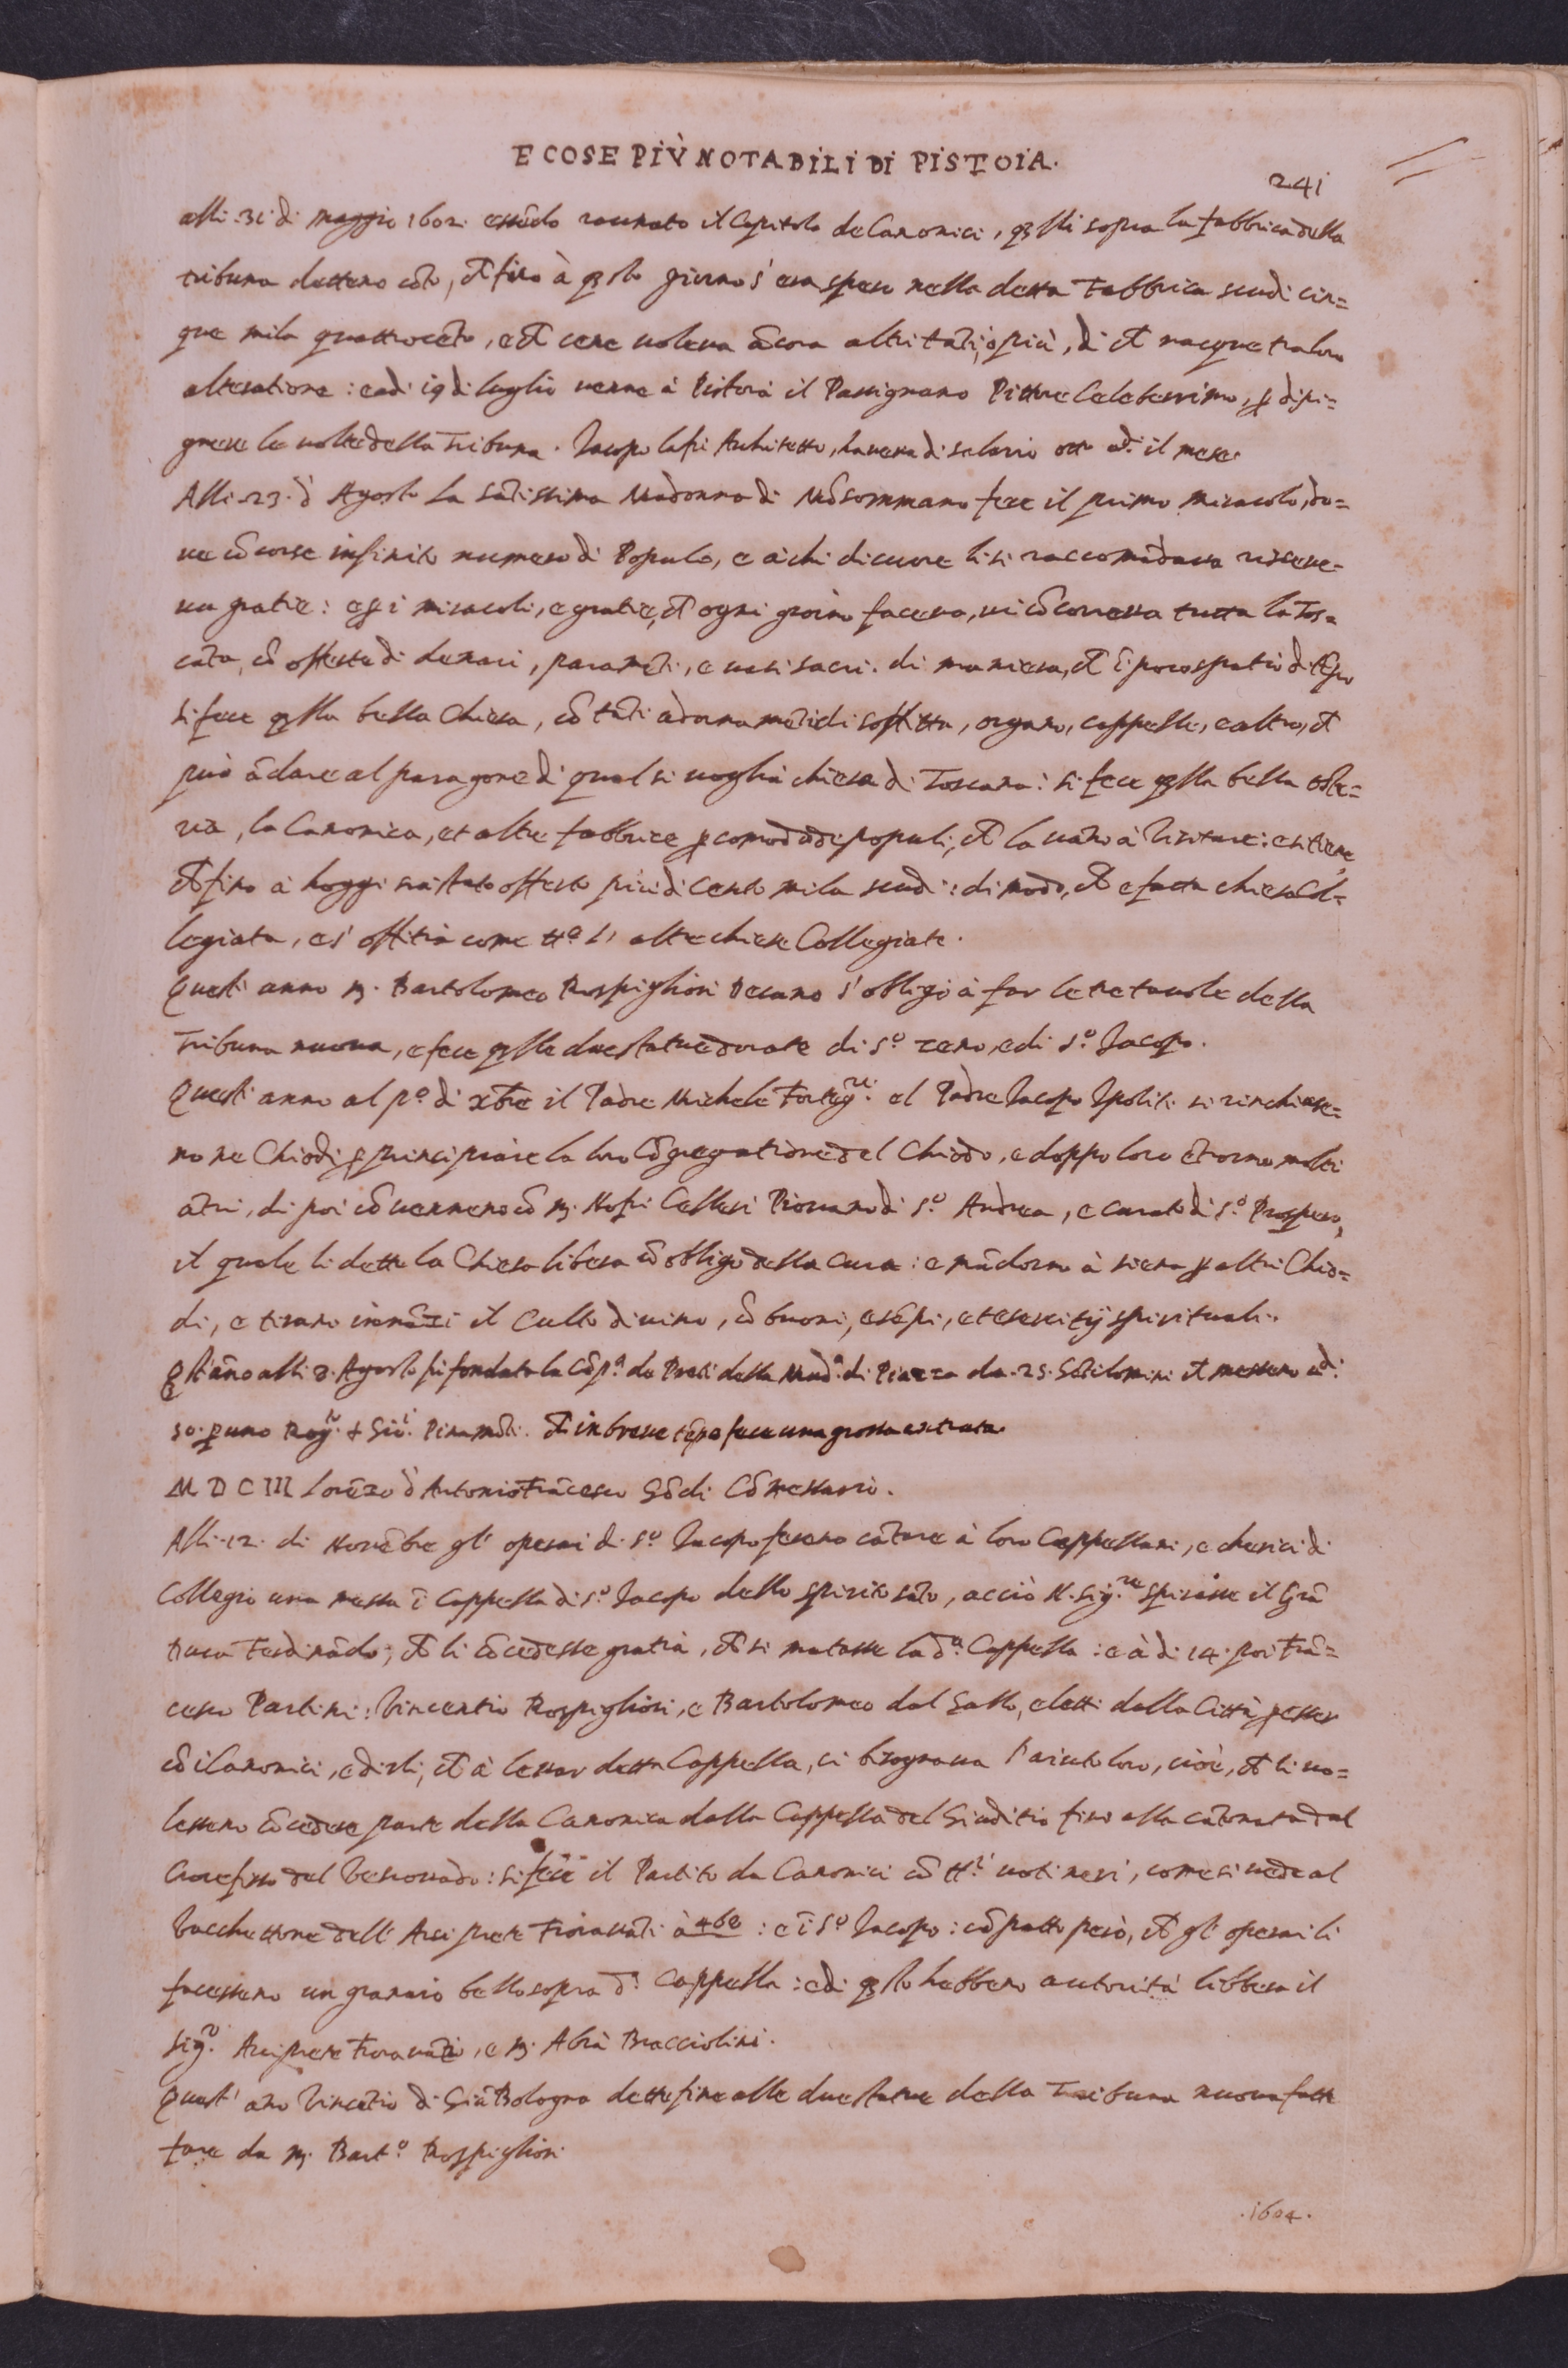 E COSE PIÙ NOTABILI DI PISTOIA.
241
alli .31. di maggio 1602. essēdo raunato il Capitolo de Canonici, q̄lli sopra la fabbrica della
tribuna dettono cōto, ch fino à q̄sto giorno s'era speso nella detta Fabbrica scudi cin=
que mila quattrocēto, e ch cene voleva ācora altri tāti, ò più, di ch nacque tra loro
alteratione: e adi 19 di luglio venne à Pistoia il Passignano Pittore Celeberrimo, p̄ dipi=
gnere le volte della Tribuna. Jacopo lafri Architetto, haveva di salario otto di il mese.
Alli .23. d Agosto La sātissima Madonna di Mōsommano fece il primo miracolo, do=
ve cōcorse infinito numero di Popolo, e à chi di cuore li si raccomādava riceve=
va gratie: e p̄ i miracoli, e gratie, ch ogni giorno faceva, vi cōcorreva tutta la Tos=
cana, cō offerte di denari, paramēti, e vasi sacri. di maniera, ch ī poco spatio di tēpo
si fece q̄lla bella Chiesa, cō tāti adornamēti di soffitta, organo, cappelle, e altro, ch
può ādare al paragone di qual si voglia chiesa di Toscana: si fece q̄lla bella oste=
ria, la Canonica, et altre fabbrice p̄ comodo de popoli, ch la vāno à visitare: e si tiene,
ch fino à hoggi sia stato offerto più di cento mila scudi: di modo, ch e fatta chiesa Col=
legiata, e s' offitia come tt.e l' altre chiese Collegiate.
Quest' anno M. Bartolomeo Rospigliosi Decano s' obligò à far le tre tavole della
Tribuna nuova, e fece q̄lle due statue dorate di S.o Zeno, e di S.o Jacopo.
Quest' anno al p.o di xbre il Padre Michele Forteg.ri el Padre Jacopo Ipoliti si rinchiuse=
no ne Chiodi p̄ principiare la loro Cōgregatione del Chiodo, e doppo loro ētrorno molti
altri, di poi cōvennero cō M. Nofri Cellesi Piovano di S.o Andrea, e curato di S.o Prospero,
il quale li dette la Chiesa libera cō obligo della cura: e māndorno à Siena p̄ altri Chio=
di, e tirano innāzi il Culto divino, cō buoni, esēpi, et esercitij spirituali.
Q̄st' āno alli 8. Agosto fu fondata la Cōp.a de Preti della Mad.a di Piazza da .25. ch messero di
50. p̄ uno Rog.to Gio. ch in breve tēpo fece una grossa entrata.
M D C III Lorēzo d Antonio Frācesco Gōdi Cōmessario.
Alli .12. di Novēbre gl' operai di S.o Jacopo ferono cātare à loro Cappellani, e cherici di
Collegio una messa ī Cappella di S.o Jacopo dello spirito sāto, acciò N. Sig.re spirasse il Grā
Duca Ferdinādo, ch li cōcedesse gratia, ch si mutasse la d.a Cappella: e à di 14. poi Frā=
cesco Partini: Vincentio Rospigliosi, e Bartolomeo dal Gallo, eletti dalla Città p̄ esser
cō i Canonici, e dirli, ch à levar detta Cappella, ci bisognava l' aiuto loro, cioè, ch li vo=
lessero cōcedere parte della Canonica dalla Cappella del Giuditio fino alla cātonata dal
Crocefisso del Vescovado: si fece il Partito da Canonici cō tt.i voti neri, come si vede al
Vacchettone dell' Arciprete Fioravāti à 468: e ī S.o Jacopo: cō patto però, ch gl' operai li
facessero un granaio bello sopra d.a Cappella: e di q̄sto hebbero autorità libbera il
Sig.r Arciprete Fioravāti, e M. Abrà Bracciolini.
Quest' ano Vincētio di Giā Bologna dette fine alle due statue della Tribuna nuova fatte
fare da M. Bart.o Rospigliosi
.1604.